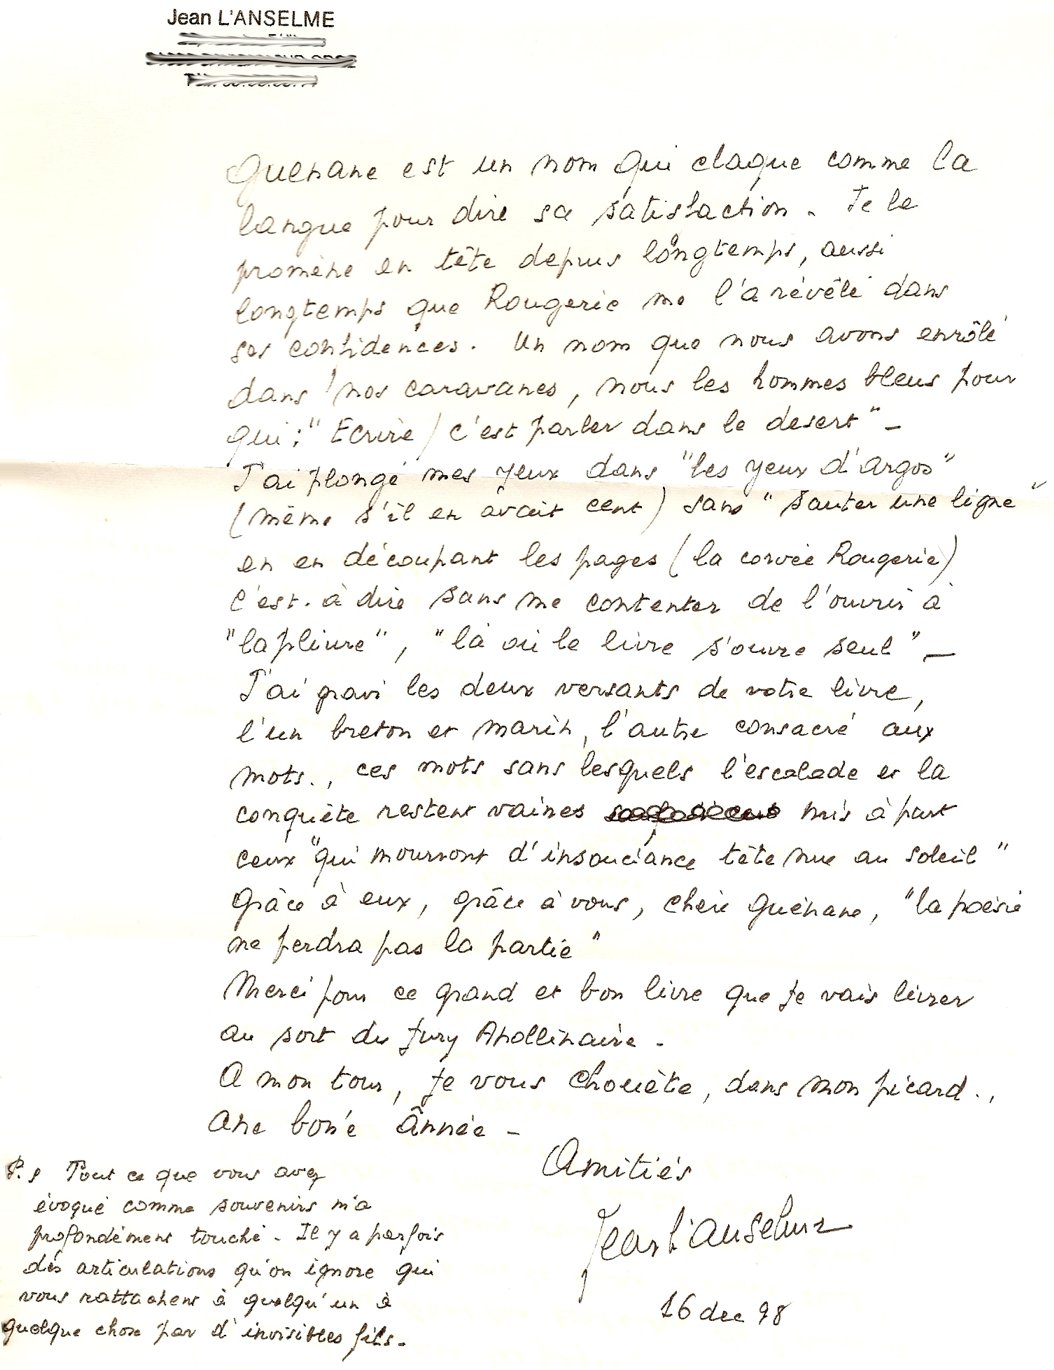 Jean L'ANSELME
Guénane est un nom qui claque comme la
langue pour dire sa satisfaction. Je le
promène en tête depuis longtemps, aussi
longtemps que Rougerie me l'a révélé dans
ses confidences. Un nom que nous avons enrôlé
dans nos caravanes, nous les hommes bleus pour
qui : "Ecrire / c'est parler dans le désert" –
J'ai plongé mes yeux dans "les yeux d'Argos"
(même s'il en avait cent) sans "sauter une ligne"
en en découpant les pages (la corvée Rougerie)
c'est-à dire sans me contenter de l'ouvrir à
"la pliure", "là où le livre s'ouvre seul" –
J'ai gravi les deux versants de votre livre,
l'un breton et marin, l'autre consacré aux
mots., ces mots sans lesquels l'escalade et la
conquête restent vaines mis à part
ceux "qui mourront d'insouciance tête nue au soleil"
Grâce à eux, grâce à vous, chère Guénane, "la poésie
ne perdra pas la partie"
Merci pour ce grand et bon livre que je vais livrer
au sort du Jury Apollinaire.
A mon tour, je vous chouète, dans mon picard.,
ane bon'e ânnée –
Amitiés
Jean L'anselme
16 dec 98
P.S Tout ce que vous avez
évoqué comme souvenirs m'a
profondément touché. Il y a parfois
des articulations qu'on ignore qui
vous rattachent à quelqu'un à
quelque chose par d'invisibles fils.